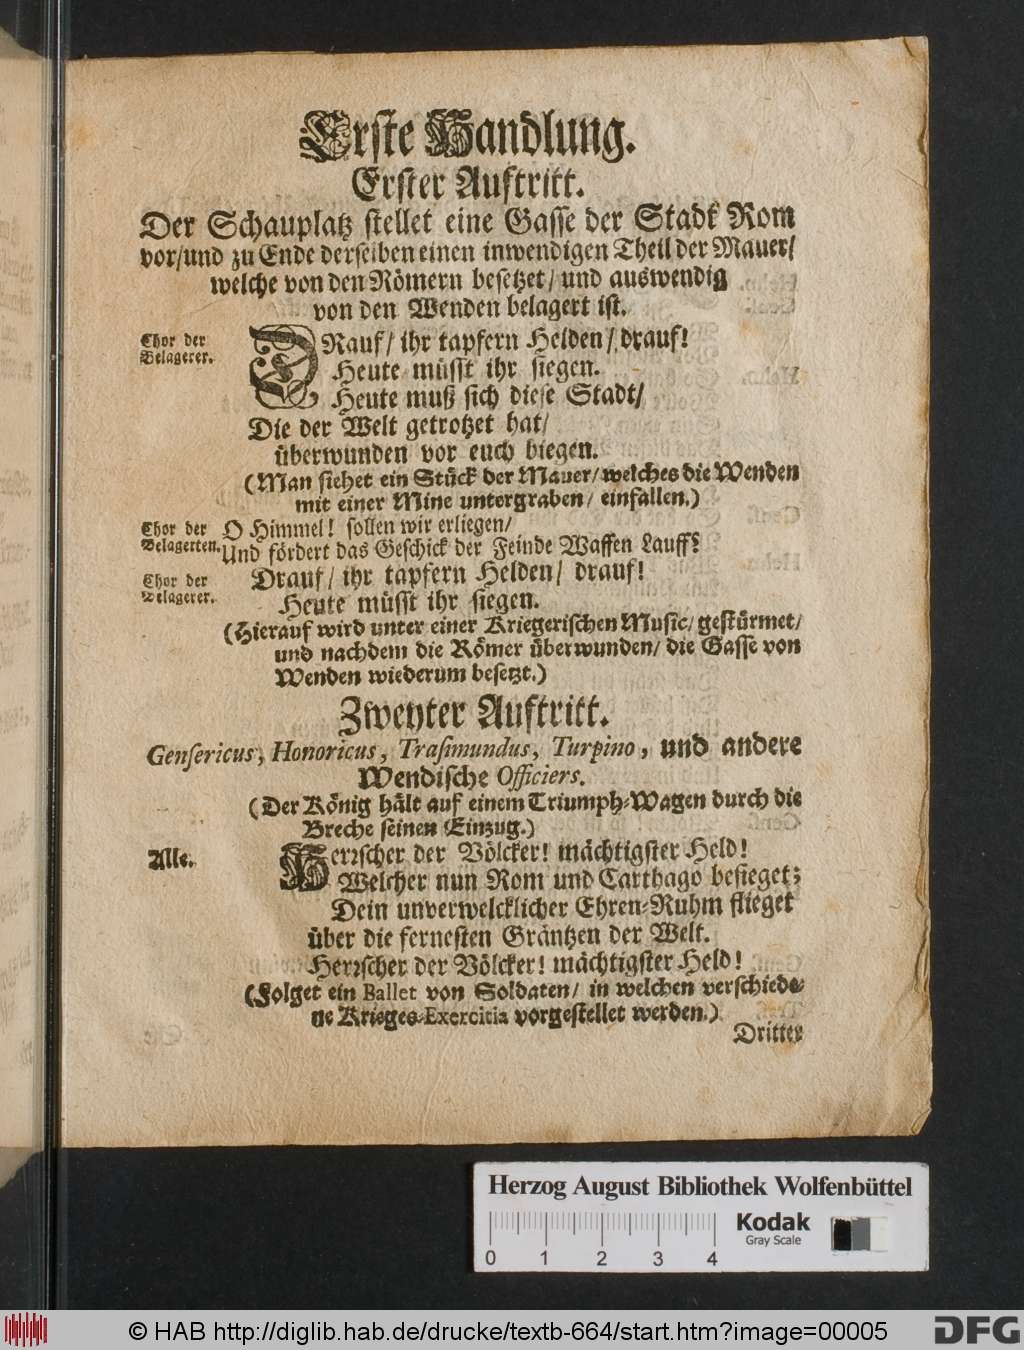 Erste Handlung.
Erster Auftritt.
Der Schauplatz stellet eine Gasse der Stadt Rom
vor/und zu Ende derselben einen inwendigen Theil der Mauer/
welche von den Römern besetzet/ und auswendig
von den Wenden belagert ist.
Chor der
Belagerer.
DRauf/ ihr tapfern Helden/ drauf!
Heute müsst ihr siegen.
Heute muß sich diese Stadt/
Die der Welt getrotzet hat/
überwunden vor euch biegen.
(Man siehet ein Stück der Mauer/welches die Wenden
mit einer Mine untergraben/ einfallen.)
Chor der
Belagerten.
O Himmel! sollen wir erliegen/
Und fördert das Geschick der Feinde Waffen Lauff?
Chor der
Belagerer.
Drauf/ ihr tapfern Helden/ drauf!
Heute müsst ihr siegen.
(Hierauf wird unter einer Kriegerischen Music/ gestürmet/
und nachdem die Römer überwunden/ die Gasse von
Wenden wiederum besetzt.)
Zweyter Auftritt.
Gensericus, Honoricus, Trasimundus, Turpino, und andere
Wendische Officiers.
(Der König hält auf einem Triumph-Wagen durch die
Breche seinen Einzug.)
Alle.
Herrscher der Völcker! mächtigster Held!
Welcher nun Rom und Carthago besieget;
Dein unverwelcklicher Ehren-Ruhm flieget
über die fernesten Gräntzen der Welt.
Herrscher der Völcker! mächtigster Held!
(Folget ein Ballet von Soldaten/ in welchen verschiede-
ne Krieges-Exercitia vorgestellet werden.)
Dritter
Herzog August Bibliothek Wolfenbüttel
Kodak
Gray Scale
0 1 2 3 4
© HAB http://diglib.hab.de/drucke/textb-664/start.htm?image=00005
DFG